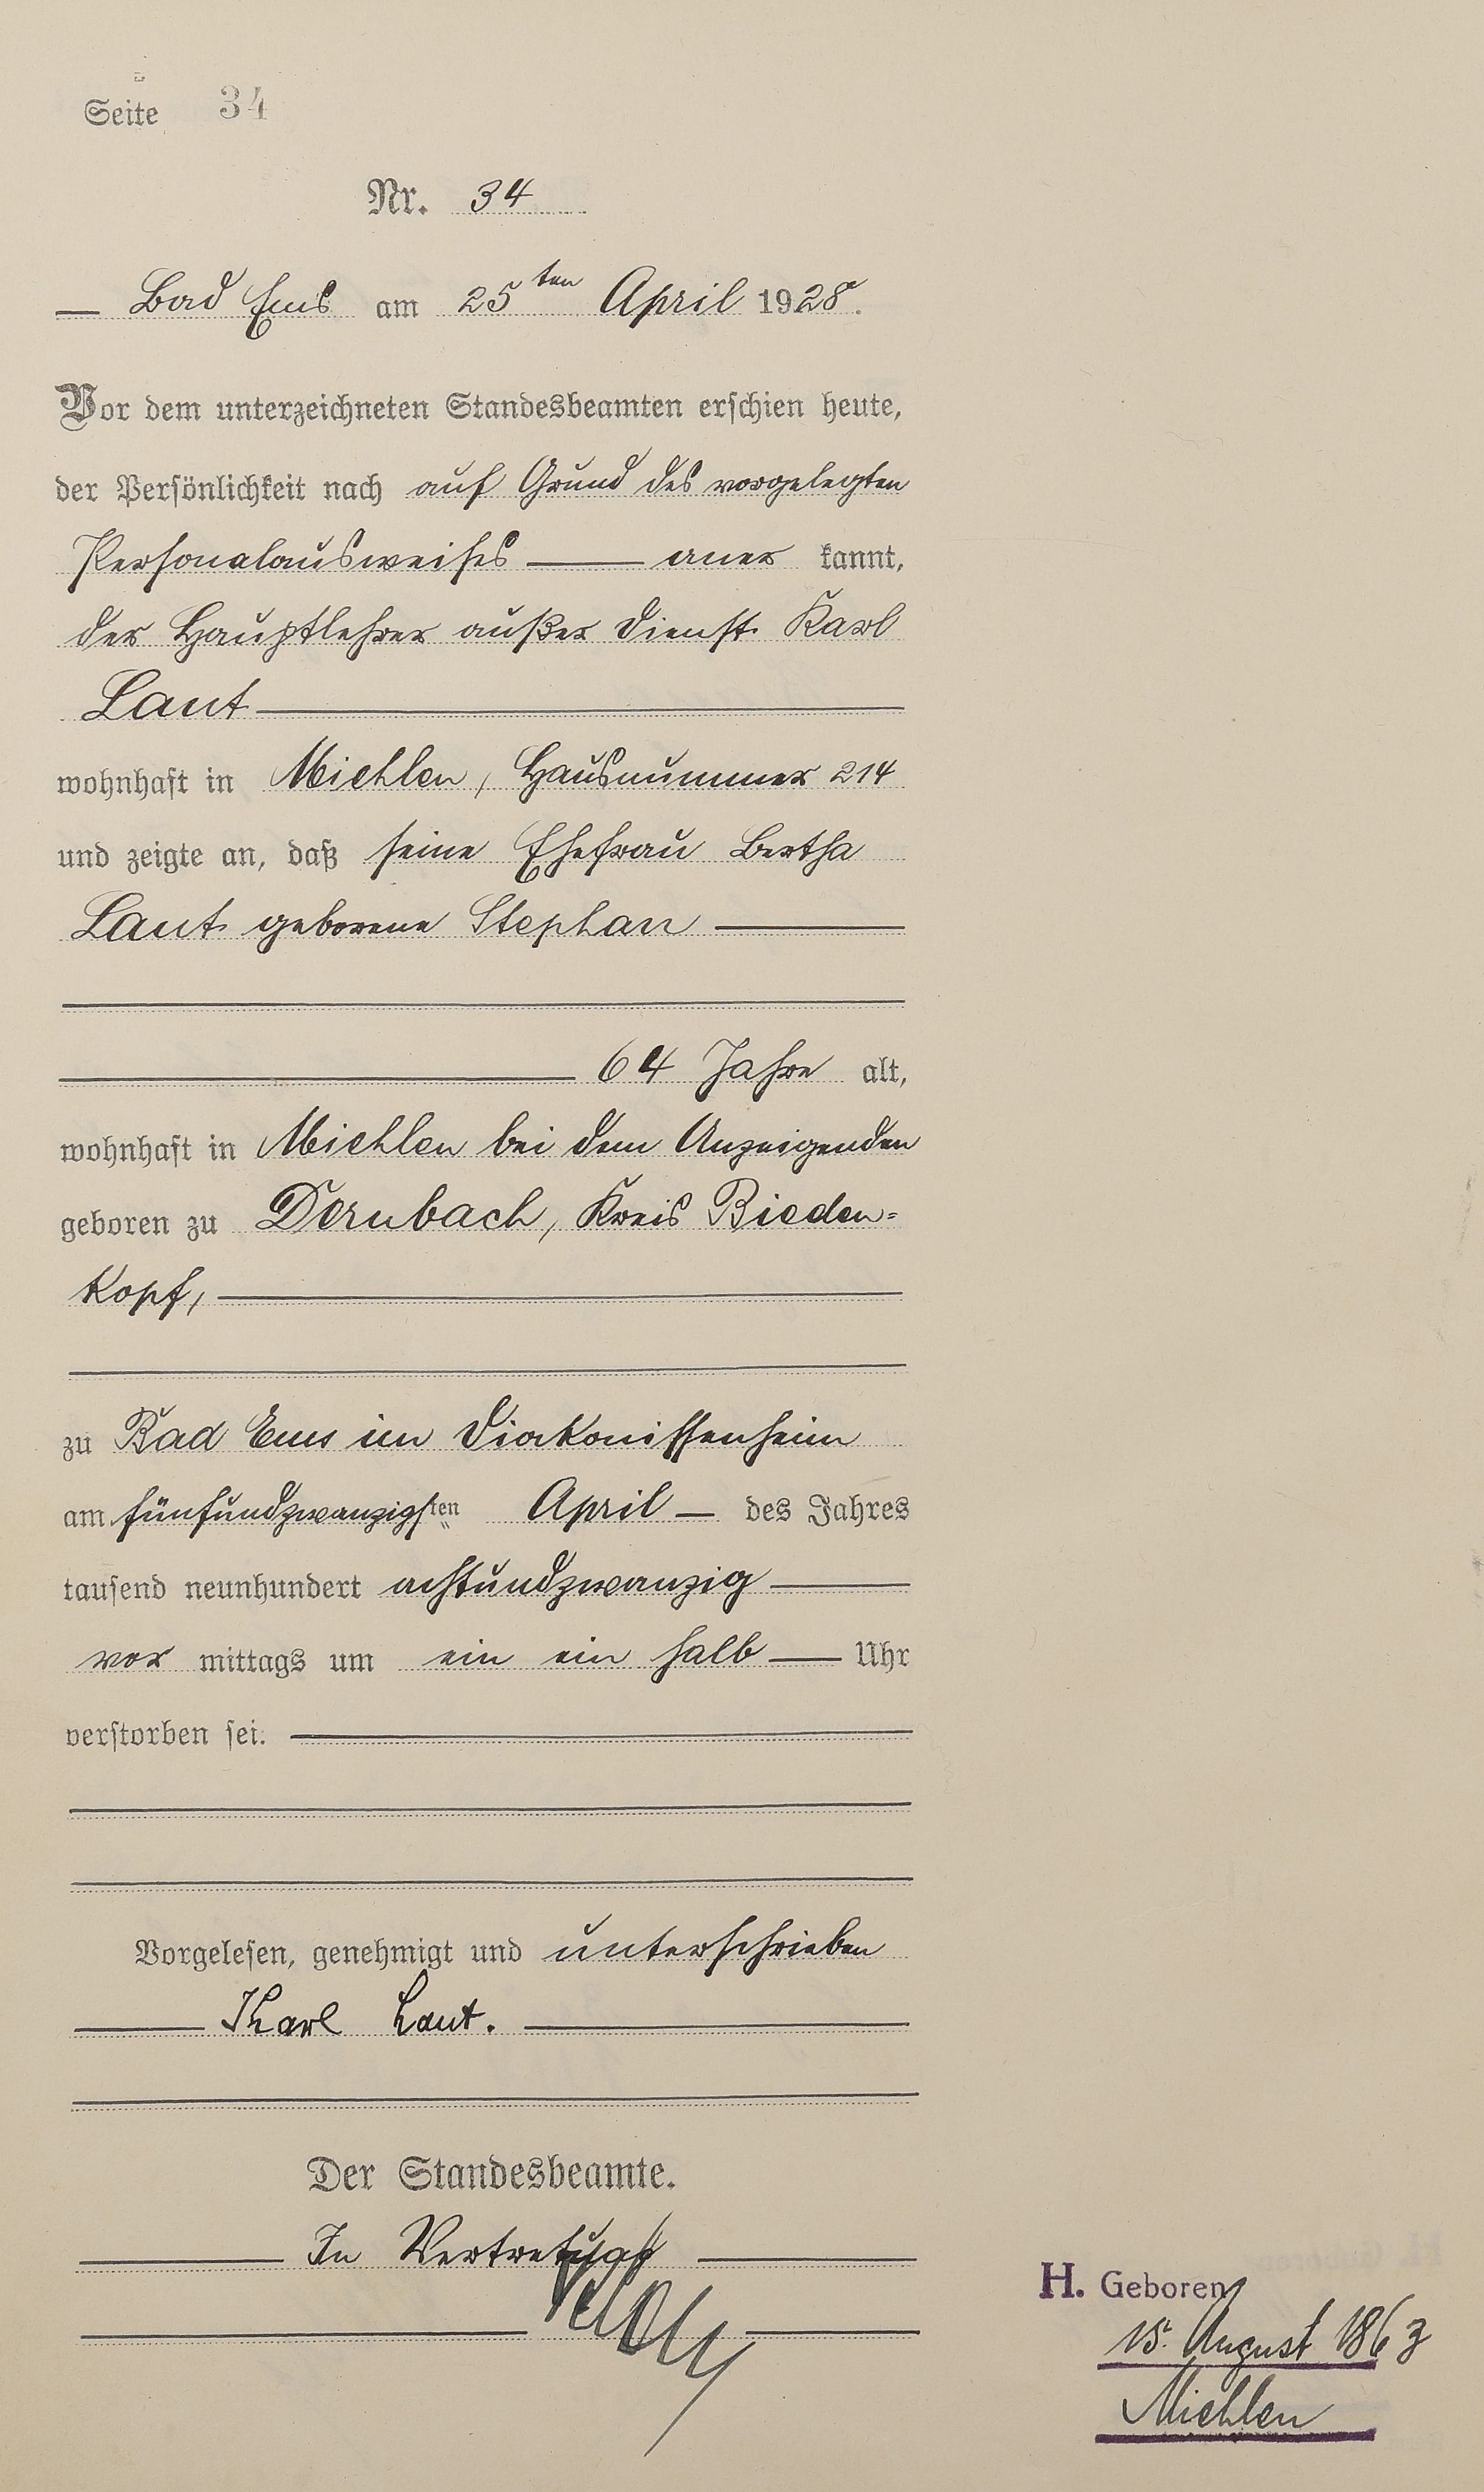 Seite 34
Nr. 34
Bad Ems am 25ten April 1928.
Vor dem unterzeichneten Standesbeamten erschien heute,
der Persönlichkeit nach auf Grund des vorgelegten
Personalausweises — aner kannt,
der Hauptlehrer außer Dienst Karl
Laut
wohnhaft in Miehlen, Hausnummer 214
und zeigte an, daß seine Ehefrau Bertha
Laut geborene Stephan
64 Jahre alt,
wohnhaft in Miehlen bei dem Anzeigenden
geboren zu Dernbach, Kreis Bieden-
kopf,
zu Bad Ems im Diakonissenheim
am fünfundzwanzigsten April — des Jahres
tausend neunhundert achtundzwanzig
vor mittags um ein ein halb — Uhr
verstorben sei.
Vorgelesen, genehmigt und unterschrieben
Karl Laut.
Der Standesbeamte.
In Vertretung
H. Geboren
15. August 1863
Miehlen